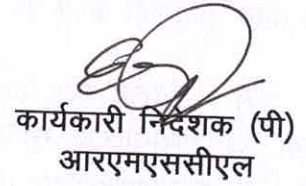 कार्यकारी निदेशक (पी)
आरएमएससीएल